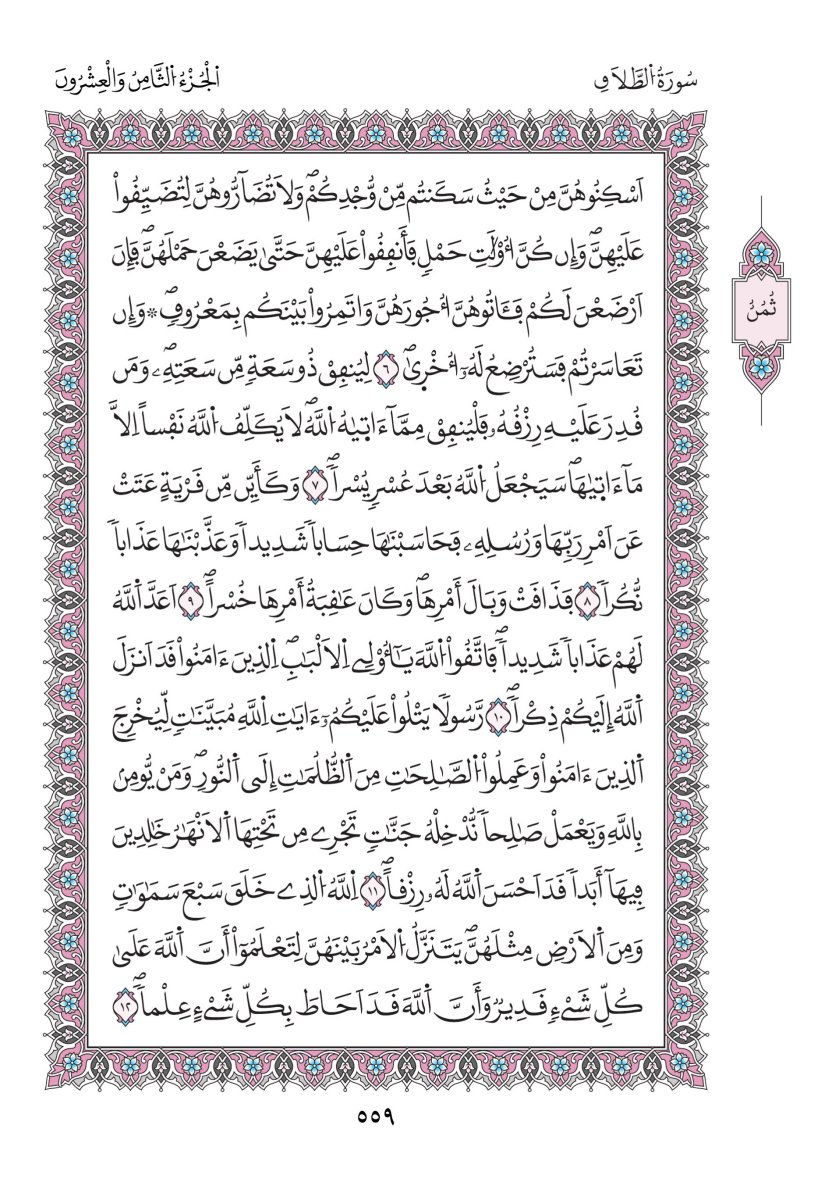 سُورَةُ اُ۬لطَّلَاقِ
اَ۬لْجُزْءُ اُ۬لثَّامِنُ وَالْعِشْرُونَ
ثُمُنُ
اَسْكِنُوهُنَّ مِنْ حَيْثُ سَكَنتُم مِّنْ وُّجْدِكُمْۖ وَلَا تُضَآرُّوهُنَّ لِتُضَيِّقُواْ
عَلَيْهِنَّۖ وَإِن كُنَّ أُوْلَٰتِ حَمْلٖ فَأَنفِقُواْ عَلَيْهِنَّ حَتَّىٰ يَضَعْنَ حَمْلَهُنَّۖ فَإِنَ
اَرْضَعْنَ لَكُمْ فَـَٔاتُوهُنَّ أُجُورَهُنَّ وَاتَمِرُواْ بَيْنَكُم بِمَعْرُوفٖۖ * وَإِن
تَعَاسَرْتُمْ فَسَتُرْضِعُ لَهُۥٓ أُخْر۪ىٰۖ ٦ لِيُنفِقْ ذُو سَعَةٖ مِّن سَعَتِهِۦۖ وَمَن
قُدِرَ عَلَيْهِ رِزْقُهُۥ فَلْيُنفِقْ مِمَّآ ءَات۪يٰهُ اُ۬للَّهُۖ لَا يُكَلِّفُ اُ۬للَّهُ نَفْساً اِلَّا
مَآ ءَات۪يٰهَاۖ سَيَجْعَلُ اُ۬للَّهُ بَعْدَ عُسْرٖ يُسْراٗۖ ٧ وَكَأَيِّن مِّن قَرْيَةٍ عَتَتْ
عَنَ اَمْرِ رَبِّهَا وَرُسُلِهِۦ فَحَاسَبْنَٰهَا حِسَاباٗ شَدِيداٗ وَعَذَّبْنَٰهَا عَذَاباٗ
نُّكُراٗ ٨ فَذَاقَتْ وَبَالَ أَمْرِهَاۖ وَكَانَ عَٰقِبَةُ أَمْرِهَا خُسْراًۖ ٩ اَعَدَّ اَ۬للَّهُ
لَهُمْ عَذَاباٗ شَدِيداٗۖ فَاتَّقُواْ اُ۬للَّهَ يَٰٓأُوْلِے اِ۬لَالْبَٰبِۖ اِ۬لذِينَ ءَامَنُواْ قَدَ اَنزَلَ
اَ۬للَّهُ إِلَيْكُمْ ذِكْراٗۖ ١٠ رَّسُولاٗ يَتْلُواْ عَلَيْكُمُۥٓ ءَايَٰتِ اِ۬للَّهِ مُبَيَّنَٰتٖ لِّيُخْرِجَ
اَ۬لذِينَ ءَامَنُواْ وَعَمِلُواْ اُ۬لصَّٰلِحَٰتِ مِنَ اَ۬لظُّلُمَٰتِ إِلَى اَ۬لنُّورِۖ وَمَنْ يُّومِنۢ
بِاللَّهِ وَيَعْمَلْ صَٰلِحاٗ نُّدْخِلْهُ جَنَّٰتٖ تَجْرِے مِن تَحْتِهَا اَ۬لَانْهَٰرُ خَٰلِدِينَ
فِيهَآ أَبَداٗ قَدَ اَحْسَنَ اَ۬للَّهُ لَهُۥ رِزْقاًۖ ١١ اِ۬للَّهُ اُ۬لذِے خَلَقَ سَبْعَ سَمَٰوَٰتٖ
وَمِنَ اَ۬لَارْضِ مِثْلَهُنَّۖ يَتَنَزَّلُ اُ۬لَامْرُ بَيْنَهُنَّ لِتَعْلَمُوٓاْ أَنَّ اَ۬للَّهَ عَلَىٰ
كُلِّ شَےْءٖ قَدِيرٞ وَأَنَّ اَ۬للَّهَ قَدَ اَحَاطَ بِكُلِّ شَےْءٍ عِلْماٗۖ ١٢
٥٥٩